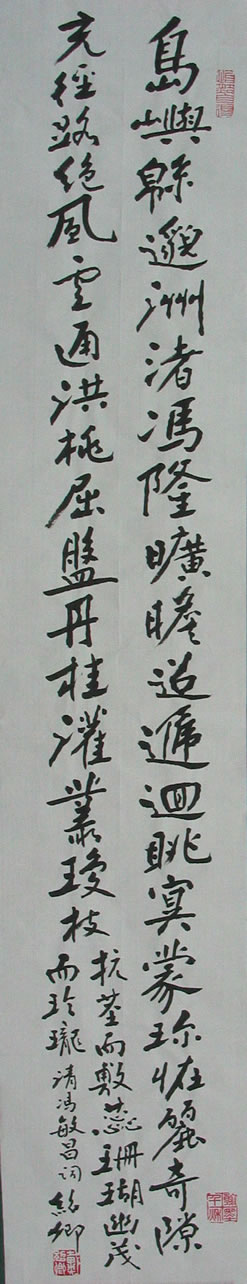 島嶼緜邈洲渚馮隆曠瞻迢遞迴眺冥蒙珍怪麗奇隙
充徑路絕風雲通洪桃屈盤丹桂灌叢瓊枝
抗莖而敷蕊珊瑚幽茂
而玲瓏清馮敏昌词紹卿